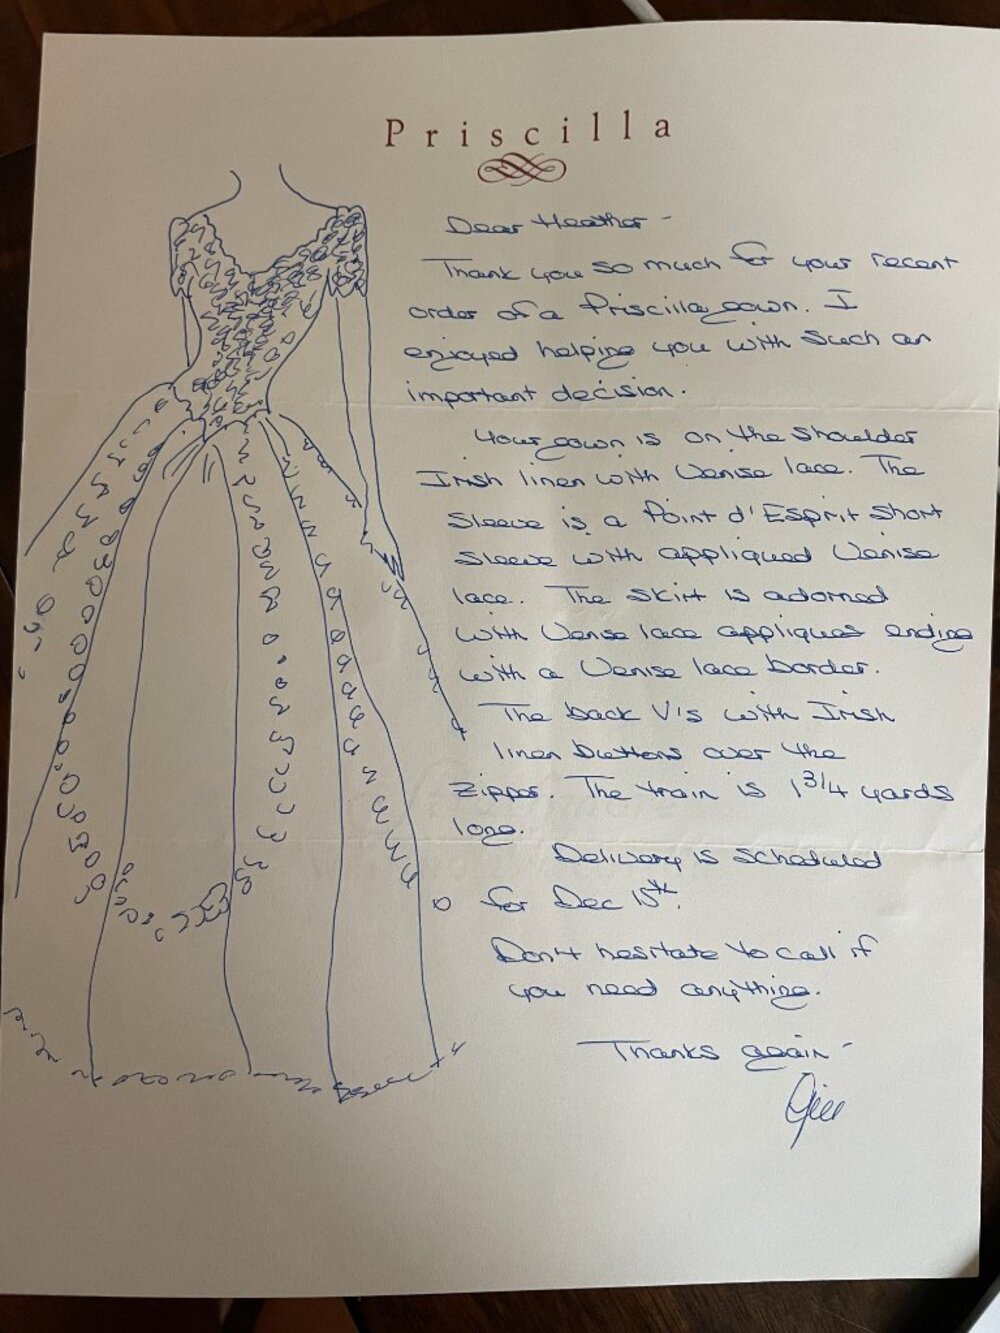 Priscilla
Dear Heather -
Thank you so much for your recent
order of a Priscilla gown. I
enjoyed helping you with such an
important decision.
Your gown is on the shoulder
Irish linen with Venise lace. The
sleeve is a Point d'Esprit short
sleeve with appliqued Venise
lace. The skirt is adorned
with Venise lace appliques ending
with a Venise lace border.
The back V's with Irish
linen buttons over the
zipper. The train is 1 3/4 yards
long.
Delivery is scheduled
for Dec 15th.
Don't hesitate to call if
you need anything.
Thanks again -